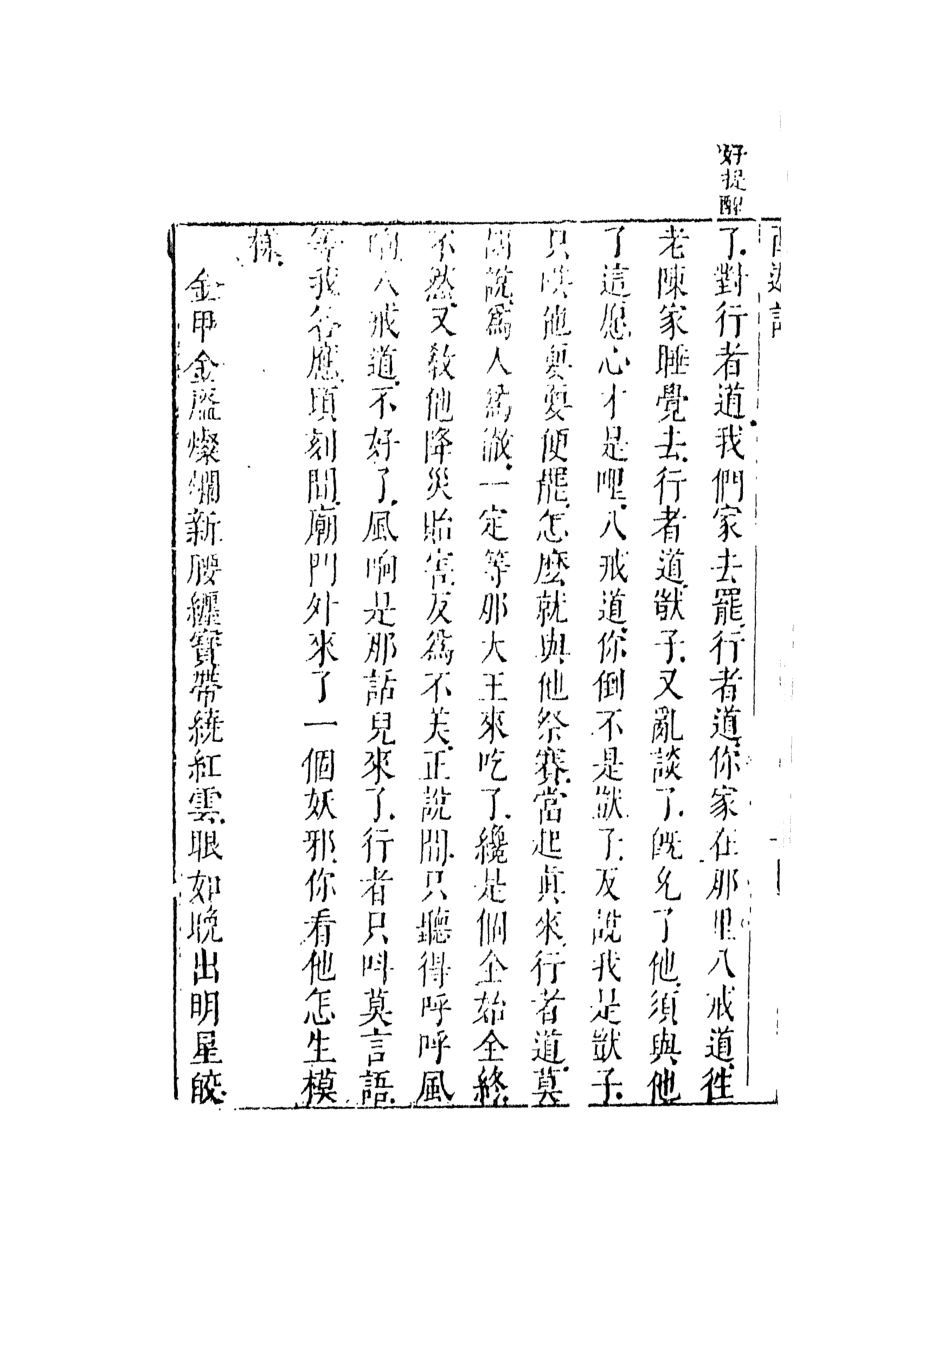 好提醒
西遊記
了對行者道我們家去罷行者道你家在那里八戒道徃
老陳家睡覺去行者道獃子又亂談了既允了他須與他
了這愿心才是哩八戒道你倒不是獃子反說我是獃子
只哄他耍耍便罷怎麽就與他祭賽當起真來行者道莫
胡說爲人爲徹一定等那大王來吃了纔是個全始全終
不然又教他降災貽害反爲不美正說間只聽得呼呼風
响八戒道不好了風响是那話兒來了行者只呌莫言語
等我答應頃刻間廟門外來了一個妖邪你看他怎生模
樣
金甲金盔燦爛新腰纏寳帶繞紅雲眼如晚出明星皎